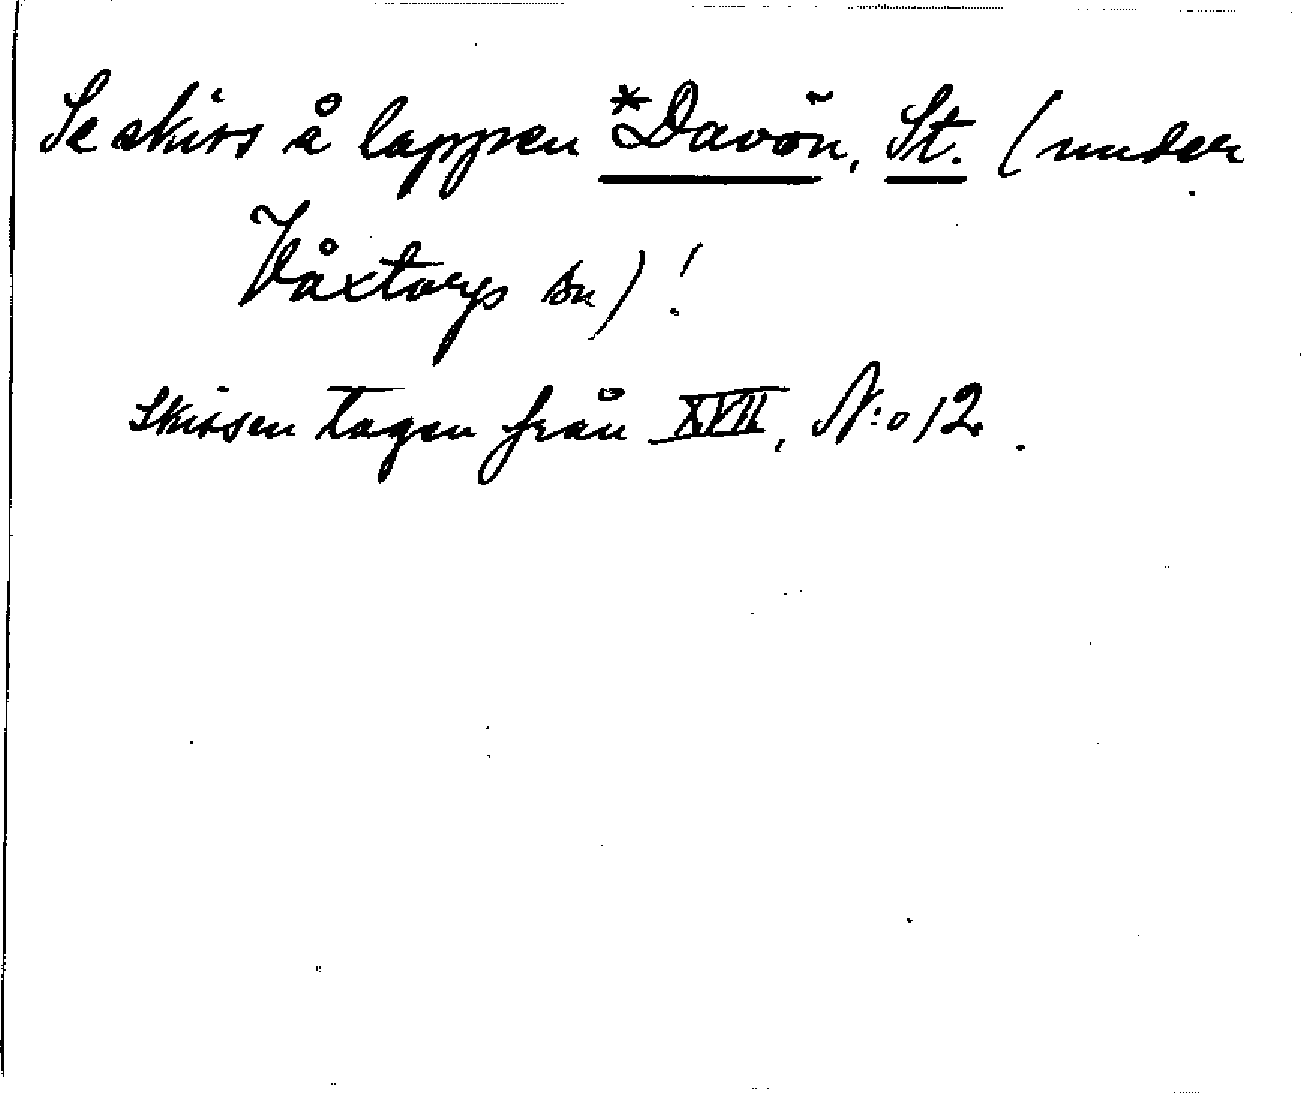 Se skiss å lappen *Davön, St. (under
Våxtorps sn)!
Skissen tagen från XVII, N:o 12.